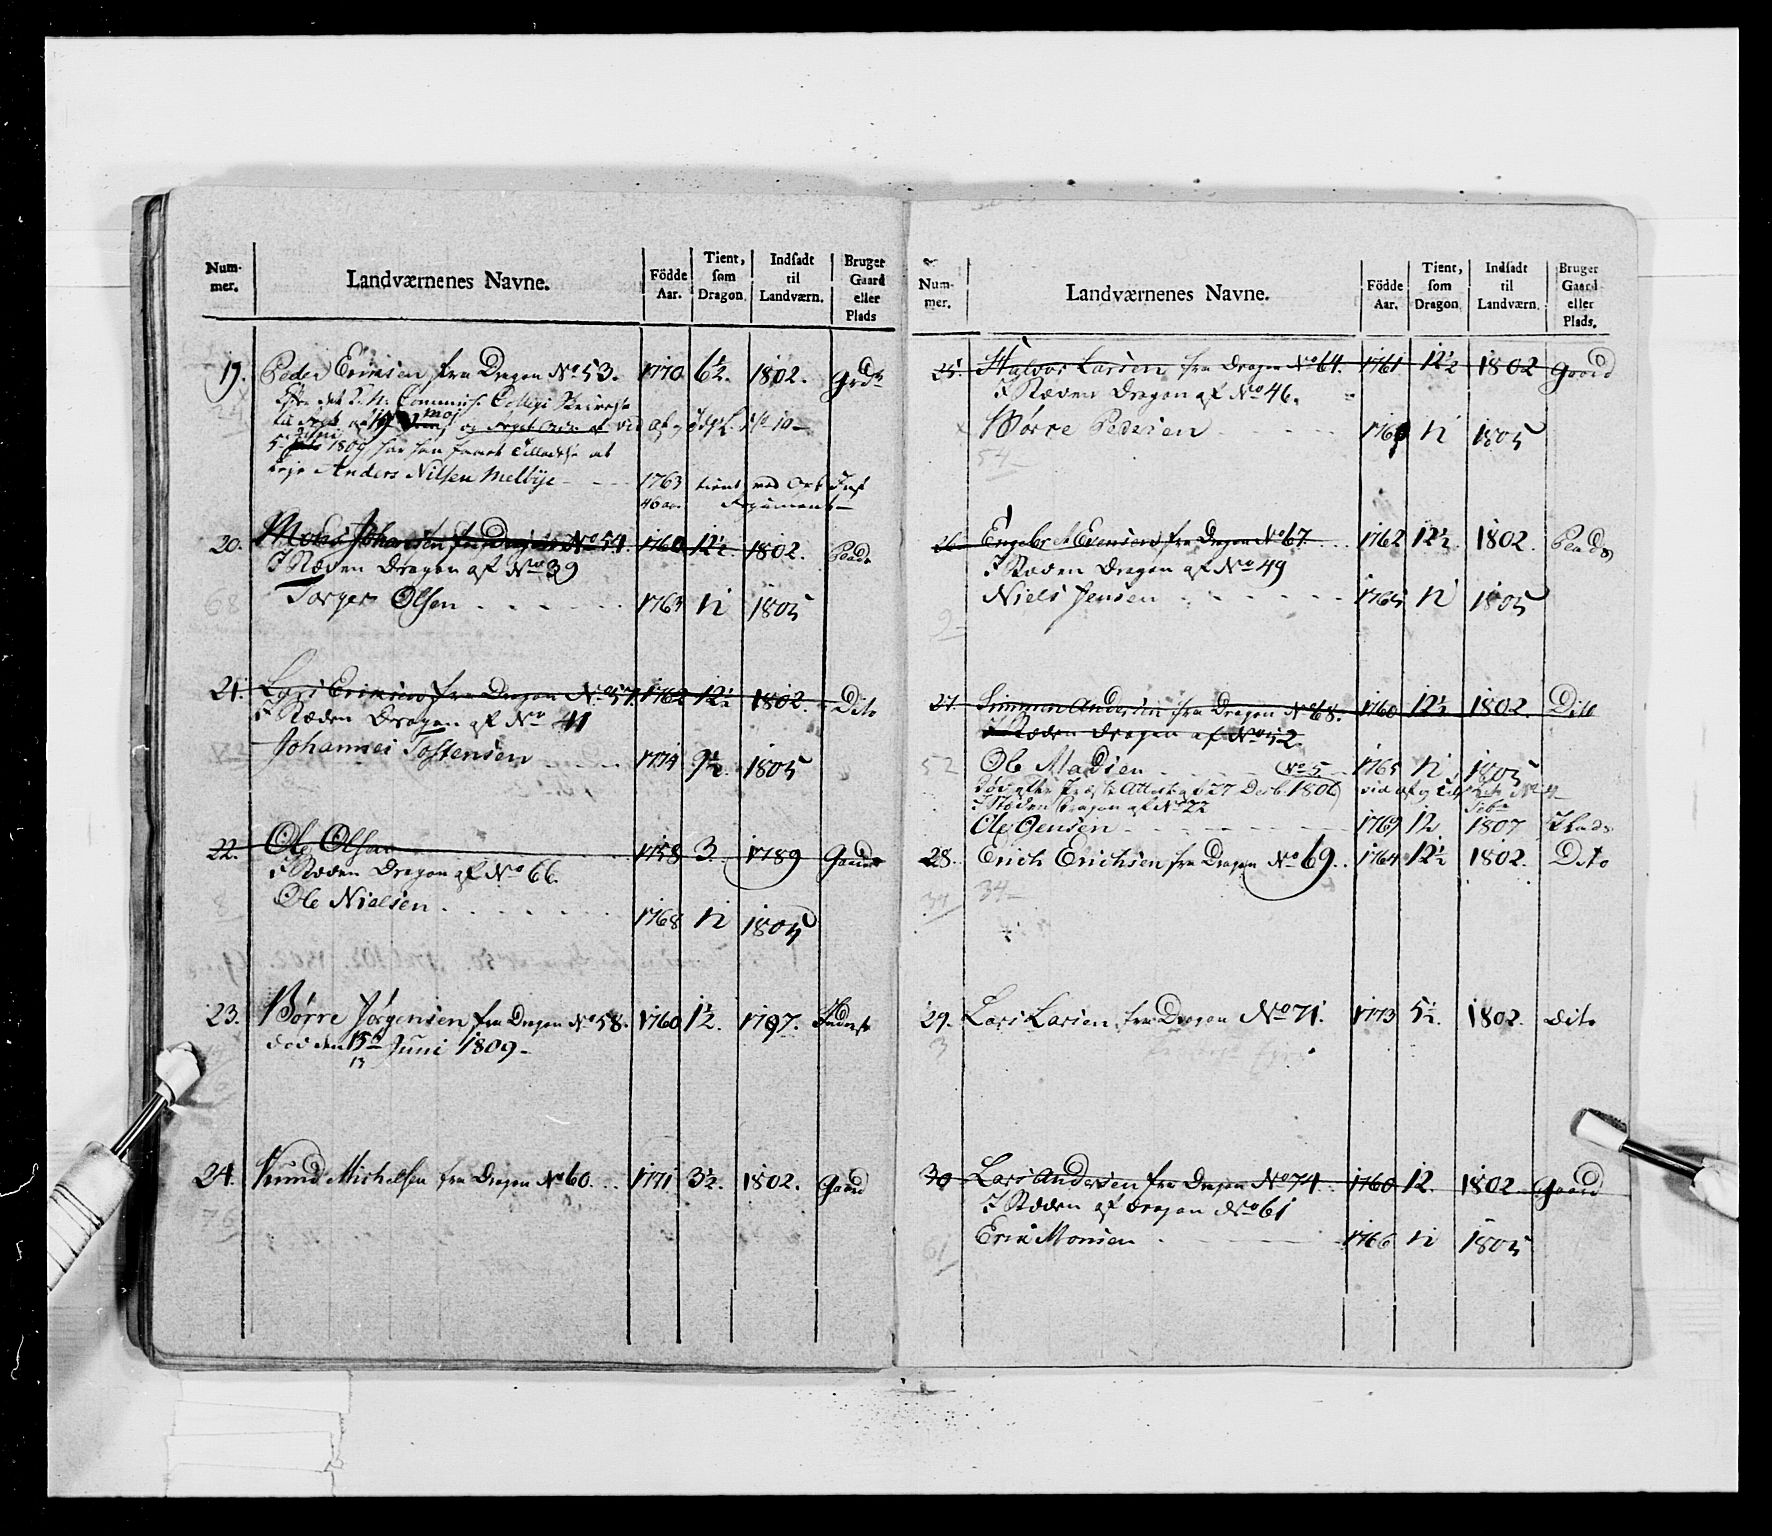 Num-mer. Landværnenes Navne. Födde Aar. Tient, som Dragon. Indsadt til Landværn. Bruger Gaard eller Plads
19. Peder Ericksen fra Dragon No 53. 1770 6½. 1802. Grd
Efter det K. N. Commiss. Collegi Skrivelse
5 Juni 1809 har han faaet Tilladelse at
leje Anders Nilsen Melbye - - - 1763 tient ved Opl Inf
46 aar. Regiment
20. Johansen fra Dragon No 54. 1760 12½ 1802. Plads
I Stæden Dragon af No 39
Torger Olsen . - - - - 1763 12 1805
68
21. Lars Ericksen fra Dragon No 57. 1762 12½ 1802. Dito
I Stæden Dragon af No 41
Johannes Tostensen - - - 1774 9½ 1805
22. Ole Olsen 1758 3. 1789 Gaard
I Stæden Dragon af No 66.
Ole Nielsen . - - - - 1768 12 1805
23. Börre Jörgensen fra Dragon No 58. 1760 1½ 1797. Inderst
död den 15de Juni 1809 -
13
24. Knud Michelsen fra Dragon No 60. . . 1771 3½. 1802. Gaard
76
Num-mer. Landværnenes Navne. Födde Aar. Tient, som Dragon. Indsadt til Landværn. Bruger Gaard eller Plads.
25. Halvor Larsen fra Dragon No 64. 1761 12½ 1802 Gaard
I Stæden Dragon af No 46.
Börre Pedersen - - - 12 1805
54
26. Engebr[et] Evensen fra Dragon No 67. . . 1762 12½ 1802. Plads
I Stæden Dragon af No 49
Niels Jensen - - - - 1765 12 1805
9
27. Simmen Andersen fra Dragon No 68. 1760 12½ 1802. Dito
I Stæden Dragon af No 52
52 Ole Madsen - - - No 5 - 1765 12 1805
död efter Præste Attest af 27 Decb. 1806
I Stæden Dragon af No 22
Ole Jensen - - - - 1769 12 1807 Plads
28. Erich Erichsen fra Dragon No 69. . 1764 12½ 1802. Dito
34 34
29. Lars Larsen fra Dragon No 71. 1773 5½. 1802. dito
3
30 Lars Andersen fra Dragon No 74. . 1760 12. 1802. Gaard
I Stæden af Dragon No 61
Erik Monsen - - - - 1766 12 1805
61